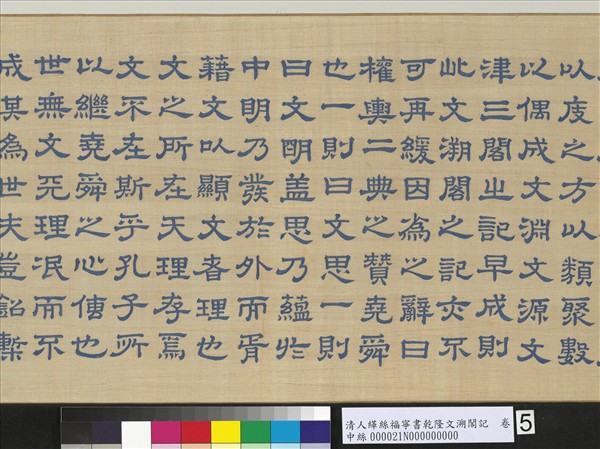 以度之方以類聚數
以偶成文淵文源文
津三閣之記早成則
此文溯閣之記亦不
可再緩因為之辭曰
權輿二典之贊堯舜
也一則曰文思一則
曰文明蓋思乃蘊於
中明乃發於外而胥
藉文以顯文者理也
文之所在天理存焉
文不在斯乎孔子所
以繼堯舜之心傳也
世無文天理泯而不
成其為世夫豈鉛槧
清人緙絲福寧書乾隆文溯閣記 卷
中絲 000021N000000000
5